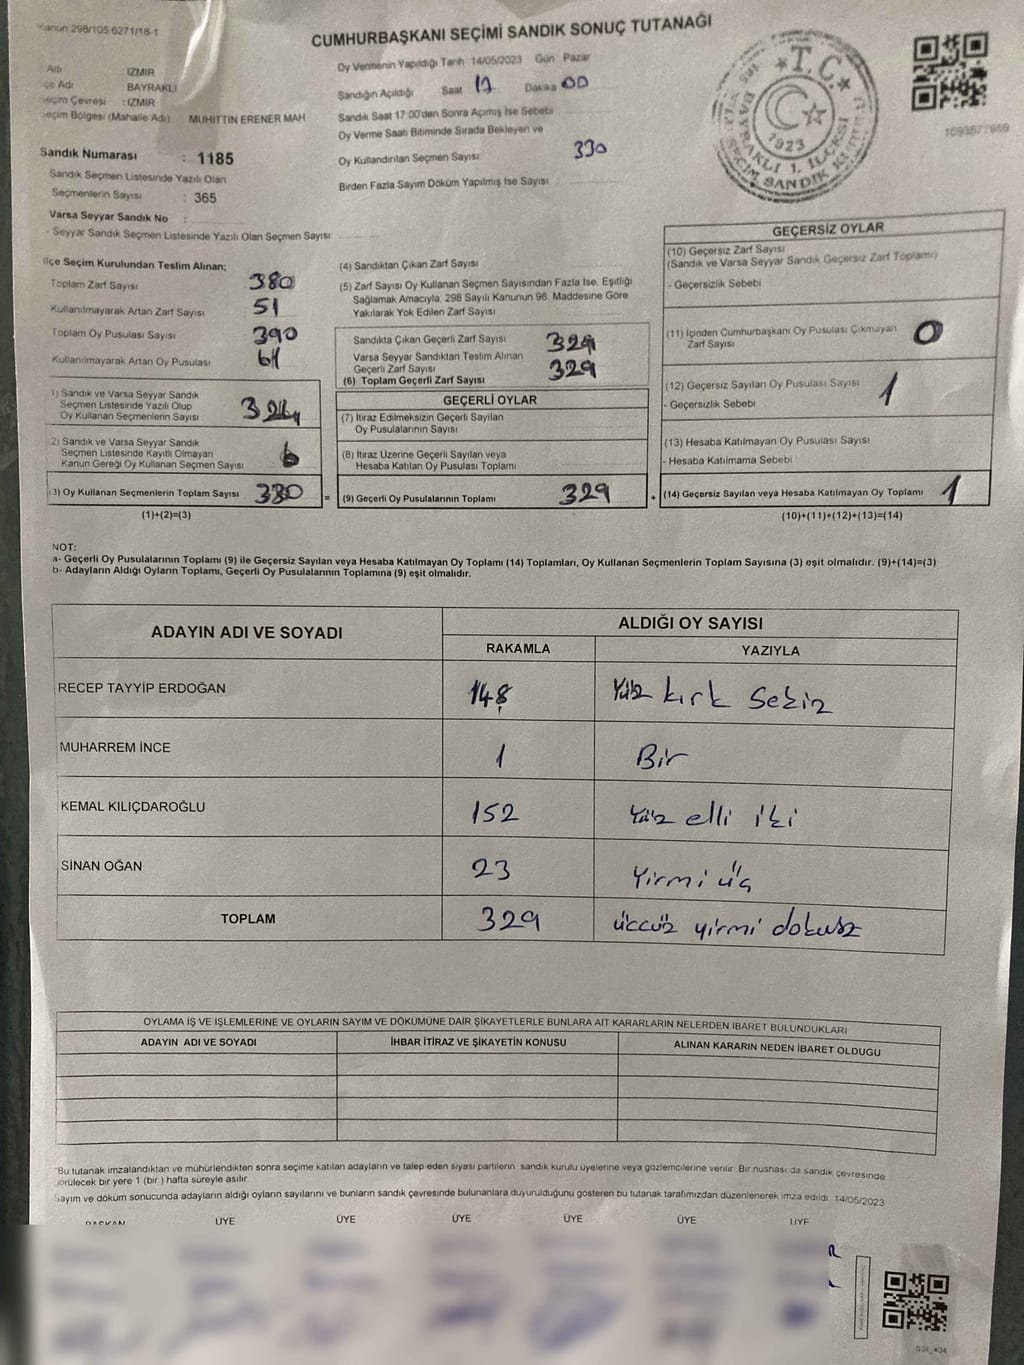 Kanun 298/105 6271/18-1
CUMHURBAŞKANI SEÇİMİ SANDIK SONUÇ TUTANAĞI
Adı İZMİR
İlçe Adı BAYRAKLI
Seçim Çevresi : İZMİR
Seçim Bölgesi (Mahalle Adı) MUHİTTİN ERENER MAH
Sandık Numarası : 1185
Sandık Seçmen Listesinde Yazılı Olan
Seçmenlerin Sayısı : 365
Varsa Seyyar Sandık No :
- Seyyar Sandık Seçmen Listesinde Yazılı Olan Seçmen Sayısı
Oy Vermenin Yapıldığı Tarih 14/05/2023 Gün Pazar
Sandığın Açıldığı Saat 17 Dakika 00
Sandık Saat 17:00'den Sonra Açımış İse Sebebi
Oy Verme Saati Bitiminde Sırada Bekleyen ve
Oy Kullandırılan Seçmen Sayısı 330
Birden Fazla Sayım Döküm Yapılmış İse Sayısı
T.C.
BAYRAKLI 1. İLÇESİ
1923
1093577959
İlçe Seçim Kurulundan Teslim Alınan;
Toplam Zarf Sayısı 380
Kullanılmayarak Artan Zarf Sayısı 51
Toplam Oy Pusulası Sayısı 390
Kullanılmayarak Artan Oy Pusulası 61
1) Sandık ve Varsa Seyyar Sandık
Seçmen Listesinde Yazılı Olup
Oy Kullanan Seçmenlerin Sayısı 324
2) Sandık ve Varsa Seyyar Sandık
Seçmen Listesinde Kayıtlı Olmayan
Kanun Gereği Oy Kullanan Seçmen Sayısı 6
(3) Oy Kullanan Seçmenlerin Toplam Sayısı 330 =
(1)+(2)=(3)
(4) Sandıktan Çıkan Zarf Sayısı
(5) Zarf Sayısı Oy Kullanan Seçmen Sayısından Fazla İse, Eşitliği
Sağlamak Amacıyla, 298 Sayılı Kanunun 98. Maddesine Göre
Yakılarak Yok Edilen Zarf Sayısı
Sandıkta Çıkan Geçerli Zarf Sayısı 329
Varsa Seyyar Sandıktan Teslim Alınan
Geçerli Zarf Sayısı 329
(6) Toplam Geçerli Zarf Sayısı
GEÇERLİ OYLAR
(7) İtiraz Edilmeksizin Geçerli Sayılan
Oy Pusulalarının Sayısı
(8) İtiraz Üzerine Geçerli Sayılan veya
Hesaba Katılan Oy Pusulası Toplamı
(9) Geçerli Oy Pusulalarının Toplamı 329 +
GEÇERSİZ OYLAR
(10) Geçersiz Zarf Sayısı
(Sandık ve Varsa Seyyar Sandık Geçersiz Zarf Toplamı)
- Geçersizlik Sebebi
(11) İçinden Cumhurbaşkanı Oy Pusulası Çıkmayan
Zarf Sayısı 0
(12) Geçersiz Sayılan Oy Pusulası Sayısı 1
- Geçersizlik Sebebi
(13) Hesaba Katılmayan Oy Pusulası Sayısı
- Hesaba Katılmama Sebebi
(14) Geçersiz Sayılan veya Hesaba Katılmayan Oy Toplamı 1
(10)+(11)+(12)+(13)=(14)
NOT:
a- Geçerli Oy Pusulalarının Toplamı (9) ile Geçersiz Sayılan veya Hesaba Katılmayan Oy Toplamı (14) Toplamları, Oy Kullanan Seçmenlerin Toplam Sayısına (3) eşit olmalıdır. (9)+(14)=(3)
b- Adayların Aldığı Oyların Toplamı, Geçerli Oy Pusulalarının Toplamına (9) eşit olmalıdır.
ADAYIN ADI VE SOYADI ALDIĞI OY SAYISI
RAKAMLA YAZIYLA
RECEP TAYYİP ERDOĞAN 148 Yüz kırk sekiz
MUHARREM İNCE 1 Bir
KEMAL KILIÇDAROĞLU 152 Yüz elli iki
SİNAN OĞAN 23 Yirmi üç
TOPLAM 329 üccüz yirmi dokusz
OYLAMA İŞ VE İŞLEMLERİNE VE OYLARIN SAYIM VE DÖKÜMÜNE DAİR ŞİKAYETLERLE BUNLARA AİT KARARLARIN NELERDEN İBARET BULUNDUKLARI
ADAYIN ADI VE SOYADI İHBAR İTİRAZ VE ŞİKAYETİN KONUSU ALINAN KARARIN NEDEN İBARET OLDUĞU
"Bu tutanak imzalandıktan ve mühürlendikten sonra seçime katılan adayların ve talep eden siyasi partilerin sandık kurulu üyelerine veya gözlemcilerine verilir. Bir nüshası da sandık çevresinde
görülecek bir yere 1 (bir ) hafta süreyle asılır.
Sayım ve döküm sonucunda adayların aldığı oyların sayılarını ve bunların sandık çevresinde bulunanlara duyurulduğunu gösteren bu tutanak tarafımızdan düzenlenerek imza edildi. 14/05/2023
BAŞKAN ÜYE ÜYE ÜYE ÜYE ÜYE ÜYE
SSI_404